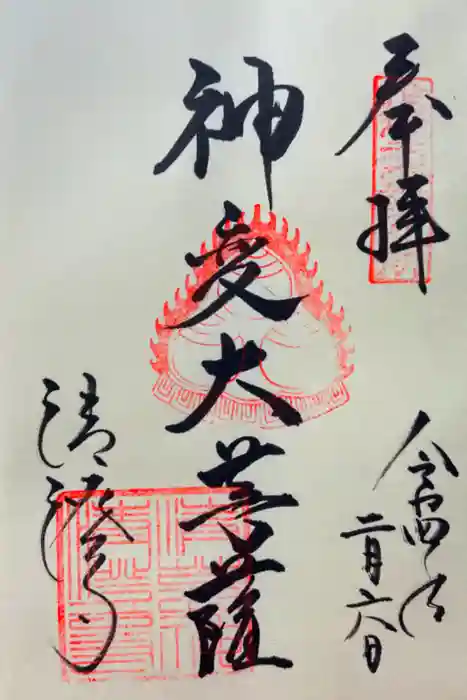 奉拝
令和四年
二月六日
神変大菩薩
清澄寺